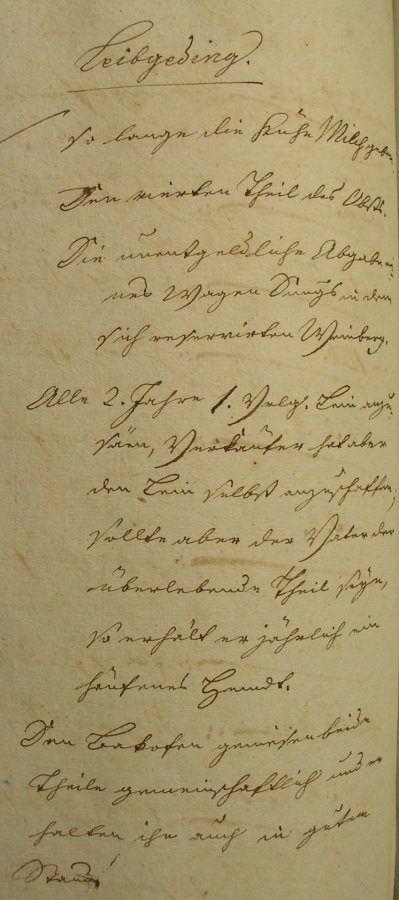 Leibgeding.
so lange die Kühe Milch geben.
Den vierten Theil des Obsts.
Die unentgeldliche Abgabe ei-
nes Wagen Dungs in dem
sich reservirten Weinberg.
Alle 2. Jahre 1. Vrlg. Lein anzu-
säen, Verkäufer hat aber
den Lein selbst anzuschaffen,
sollte aber der Vater der
überlebende Theil seyn,
so erhält er jährlich ein
häufenes Hemdt.
Den Bakofen geniesen beide
Theile gemeinschaftlich und er
halten ihn auch in gutem
Stand